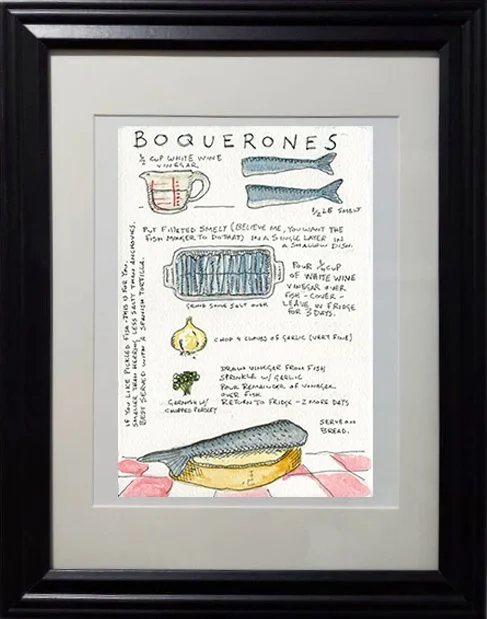 BOQUERONES
½ CUP WHITE WINE
VINEGAR
½ LB SMELT
PUT FILLETED SMELT (BELIEVE ME, YOU WANT THE
FISH MONGER TO DO THAT) IN A SINGLE LAYER IN
A SHALLOW DISH.
GRIND SOME SALT OVER
POUR ¼ CUP
OF WHITE WINE
VINEGAR OVER
FISH - COVER -
LEAVE IN FRIDGE
FOR 3 DAYS.
CHOP 4 CLOVES OF GARLIC (VERY FINE)
DRAIN VINEGAR FROM FISH
SPRINKLE W/ GARLIC
POUR REMAINDER OF VINEGAR
OVER FISH
RETURN TO FRIDGE - 2 MORE DAYS
GARNISH W/
CHOPPED PARSLEY
SERVE ON
BREAD.
IF YOU LIKE PICKLED FISH - THIS IS FOR YOU.
SMALLER THAN HERRING, LESS SALTY THAN ANCHOVIES.
BEST SERVED WITH A SPANISH TORTILLA.